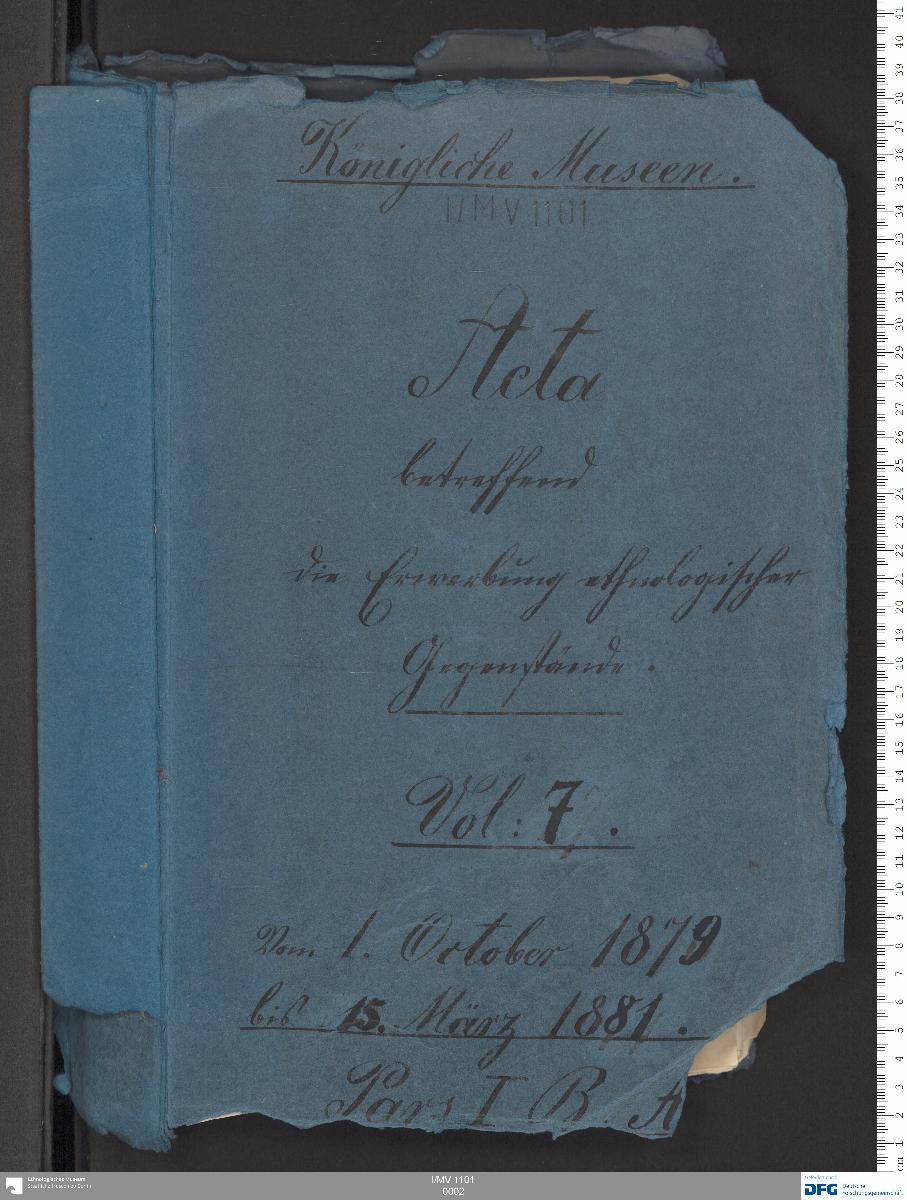 Königliche Museen.
I/MV 1101
Acta
betreffend
die Erwerbung ethnologischer
Gegenstände.
Vol: 7.
Vom 1. October 1879
bis 15. März 1881.
Pars I B. A
Ethnologisches Museum
Staatliche Museen zu Berlin
I/MV 1101
0002
Gefördert durch
DFG Deutsche
Forschungsgemeinschaft
cm 1 2 3 4 5 6 7 8 9 10 11 12 13 14 15 16 17 18 19 20 21 22 23 24 25 26 27 28 29 30 31 32 33 34 35 36 37 38 39 40 41